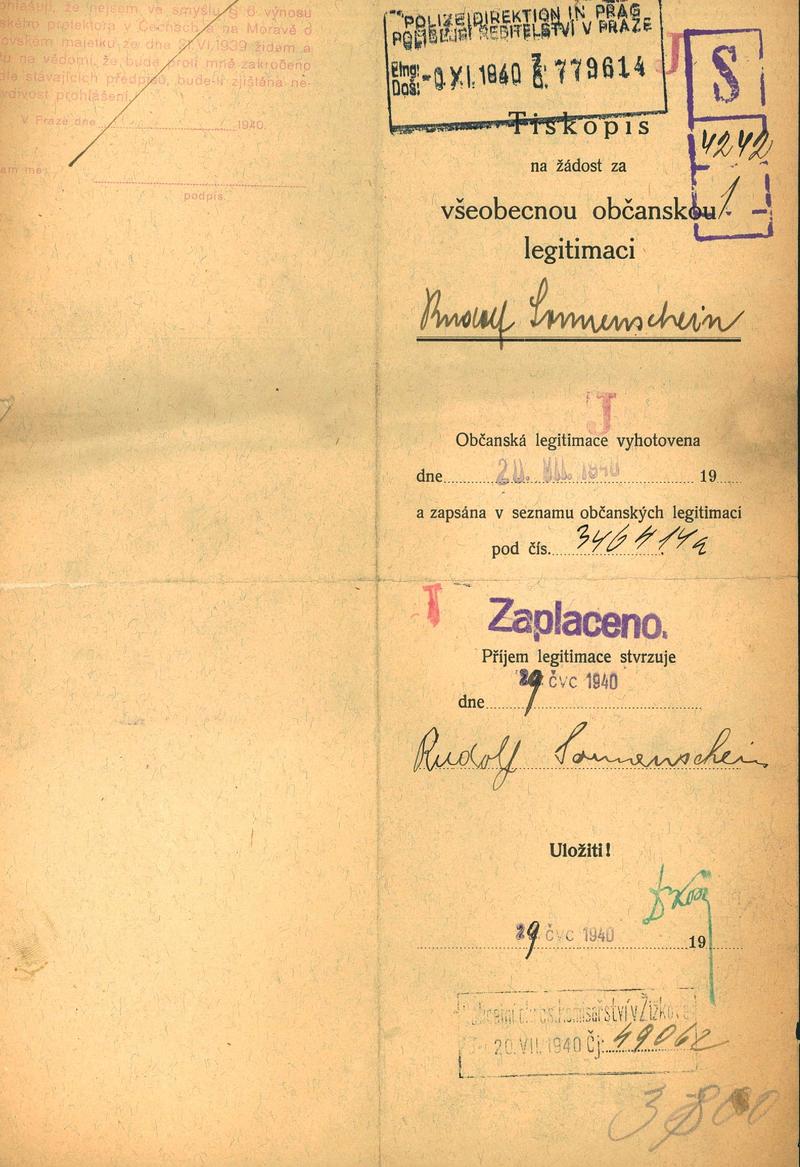 hlašuji, že nejsem ve smyslu § 6 výnosu
ského protektora v Čechách a na Moravě o
ovském majetku ze dne 21.VI.1939 židem a
u na vědomí, že bude proti mně zakročeno
dle stávajících předpisů, bude-li zjištěna ne-
vdivost prohlášení.
V Praze dne 1940.
podpis.
POLIZEIDIREKTION IN PRAG
POLICEJNÍ ŘEDITELSTVÍ V PRAZE
Eing:
Doš: XI. 1940 779614
J
S
4242
1
Tiskopis
na žádost za
všeobecnou občanskou
legitimaci
Rudolf Sonnenschein
J
Občanská legitimace vyhotovena
dne 20. VII. 1940 19
a zapsána v seznamu občanských legitimací
pod čís.
J
Zaplaceno.
Příjem legitimace stvrzuje
dne 29 ČVC 1940
Rudolf Sonnenschein
Uložiti!
29 ČVC 1940 19
komisařství v Žižkově
20.VII.1940 Čj: 49062
3800